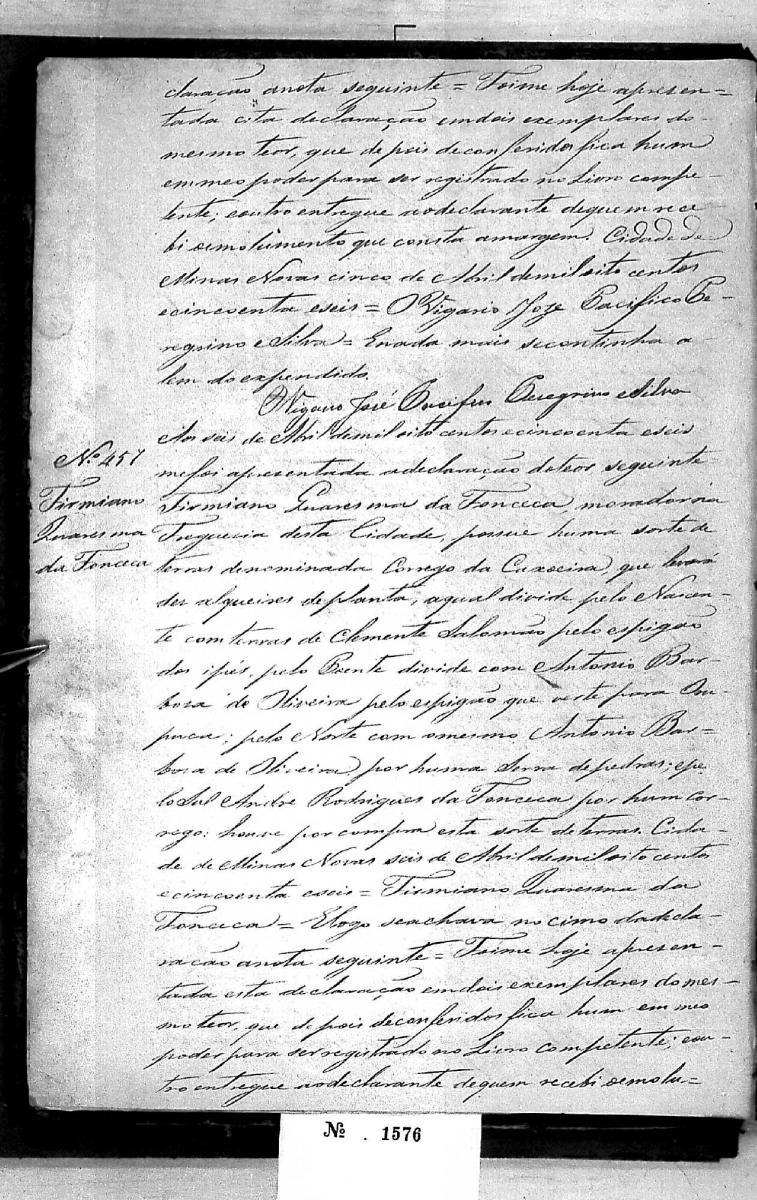 claração anota seguinte = Foime hoje apresen=
tada esta declaração emdois exemplares do
mesmo teor, que de pois deconferidos fica hum
emmeo poder para ser registrado no Livro compe-
tente; eoutro entregue aodeclarante dequem rece
bi oemolumento que consta amargem. Cidade de
Minas Novas cinco de Abril demiloito centos
ecincoenta eseis = O Vigario Joze Pacifico Pe-
regrino e Silva = Enada mais secontinha a-
lem do expendido.
O Vigario José Pacifico Peregrino e Silva
Aos seis de Abril demiloito centos ecincoenta eseis
mefoi apresentada adeclaração doteor seguinte
Nº 457
Firmiano
Quaresma
da Fonceca
Firmiano Quaresma da Fonceca, morador na
Freguecia desta Cidade, possue huma sorte de
terras denominada Corrego da Caxoeira, que levará
des alqueires deplanta, aqual divide pelo Nascen-
te com terras de Clemente Salomão pelo espigão
dos ipés, pelo Poente divide com Antonio Bar-
boza de Oliveira pelo espigão que verte para
; pelo Norte com omesmo Antonio Bar=
boza de Oliveira por huma Serra de pedras; epe
lo Sul Andre Rodrigues da Fonceca por hum cor-
rego: houve por compra esta sorte de terras. Cida-
de de Minas Novas seis de Abril demiloito centos
ecincoenta eseis = Firmiano Quaresma da
Fonceca = Elogo seachava no cimo dadecla-
ração anota seguinte = Foime hoje apresen-
tada esta declaração emdois exemplares do mes-
mo teor, que de pois deconferidos fica hum em meo
poder para ser registrado no Livro competente; eou-
tro entregue aodeclarante dequem recebi oemolu=
Nº . 1576